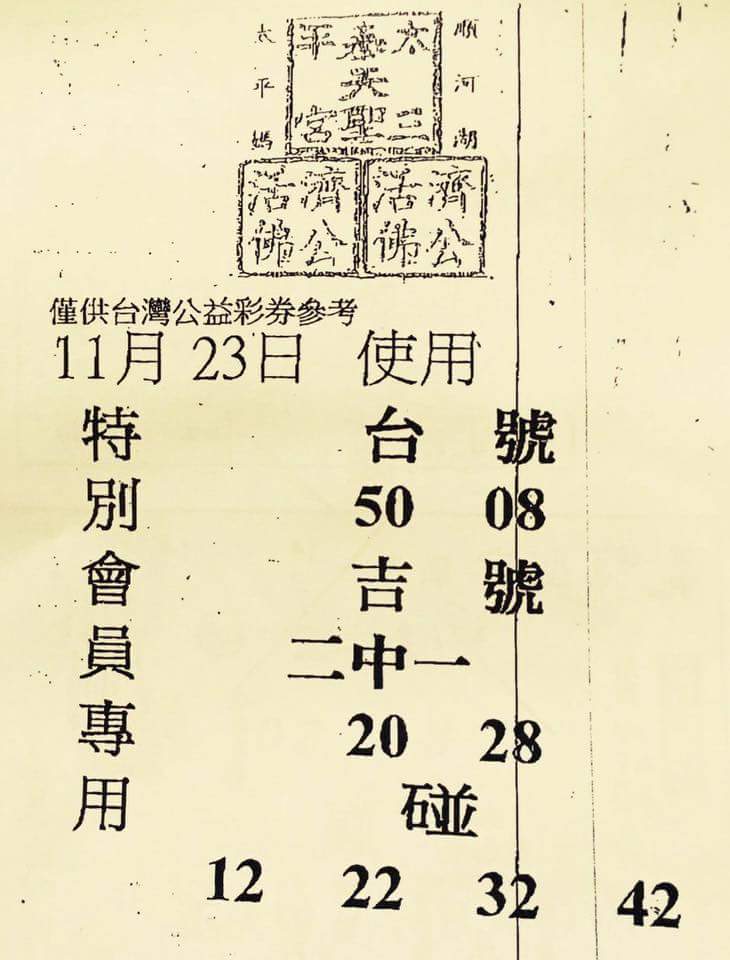 順河湖
太平媽
太三
聖
平宮
濟公
活佛
濟公
活佛
僅供台灣公益彩券參考
11月 23日 使用
特別會員專用
台 號
50 08
吉 號
二中一
20 28
碰
12 22 32 42